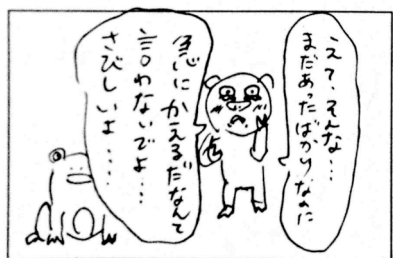 ええ、そんな…
まだあったばかりなのに
急にかえるだなんて
言わないでよ…
さびしいよ….